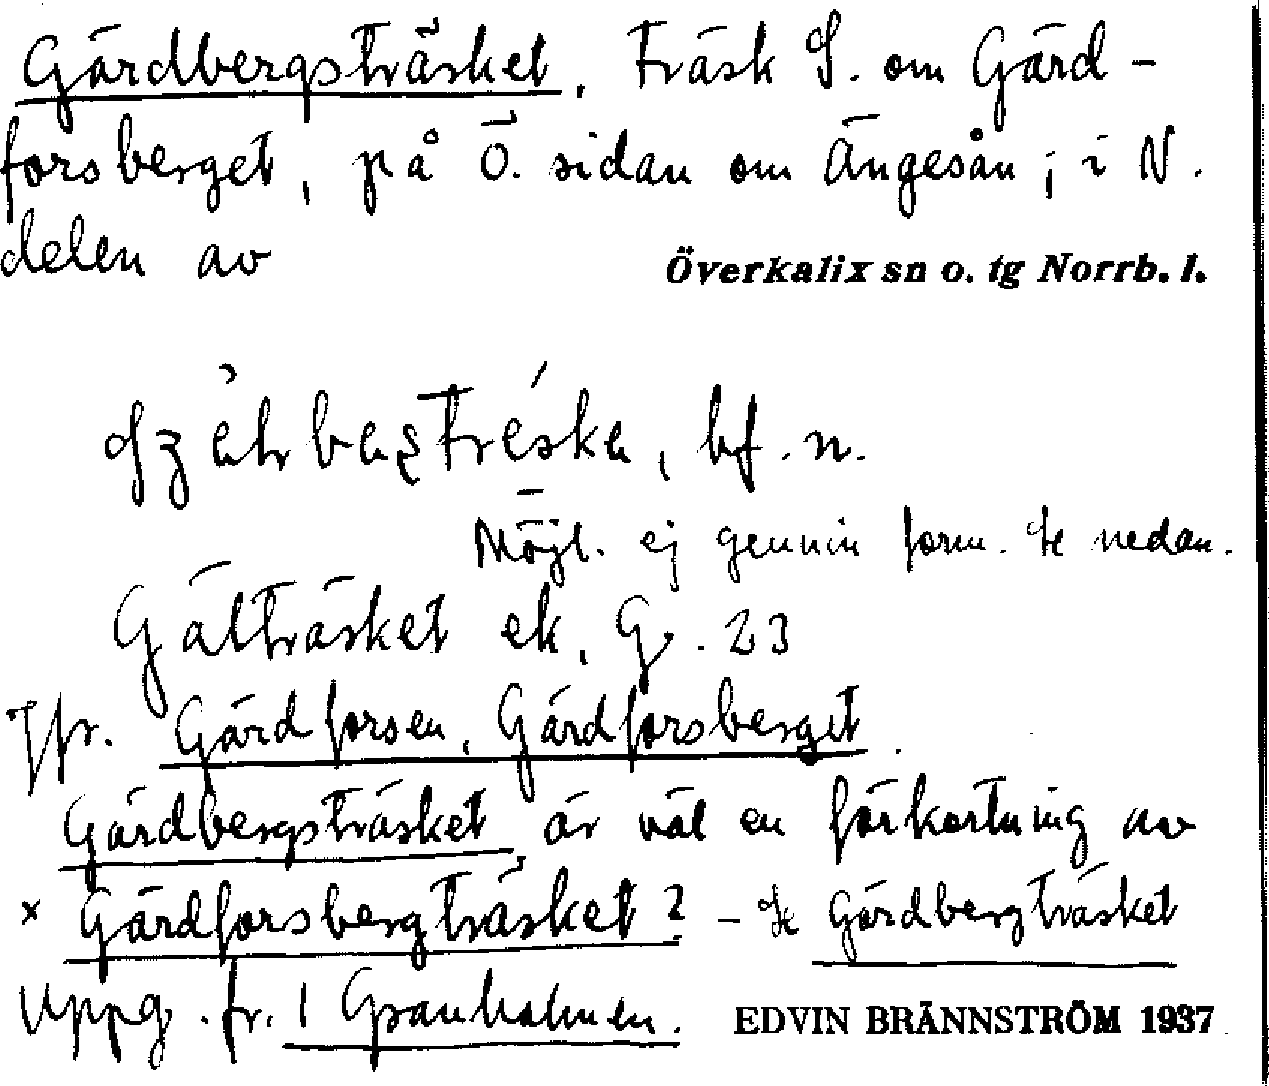 Gärdbergsträsket, Träsk S. om Gärd-
forsberget, på Ö. sidan om Ängesån; i N.
delen av
Överkalix sn o. tg Norrb. l.
bf. n.
Möjl. ej genuin form. Se nedan.
Gälträsket ek. G. 23
Jfr. Gärdforsen, Gärdforsberget.
Gärdbergsträsket är väl en förkortning av
× Gärdforsbergträsket? – Se Gärdbergträsket
Uppg. fr. 1 Granholmen.
EDVIN BRÄNNSTRÖM 1937